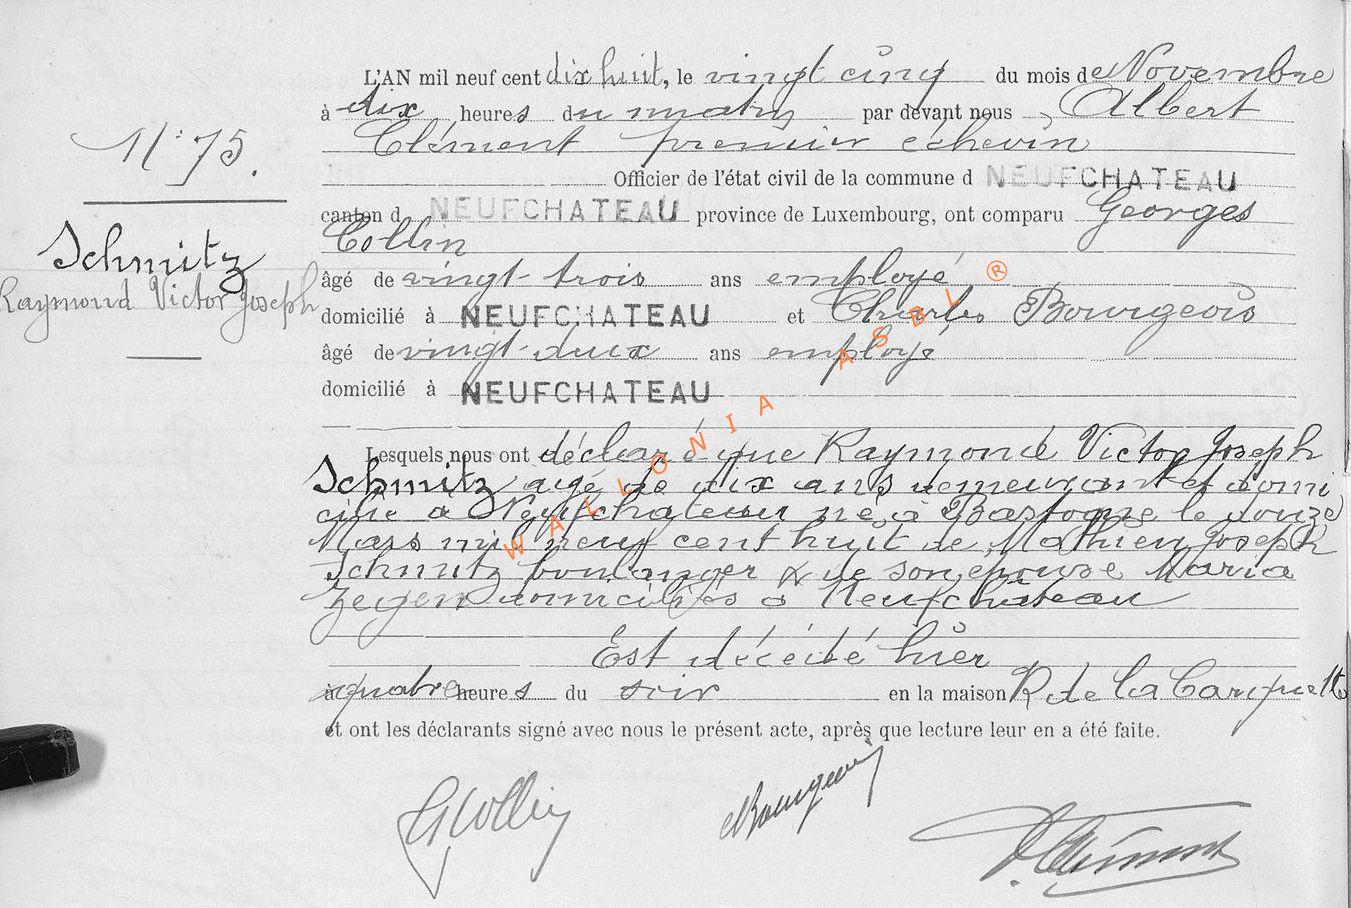 L'AN mil neuf cent dix huit, le vingt cinq du mois de Novembre
à dix heures du matin par devant nous Albert
Clément premier échevin
Officier de l'état civil de la commune d NEUFCHATEAU
canton d NEUFCHATEAU province de Luxembourg, ont comparu Georges
Collin
âgé de vingt-trois ans employé
domicilié à NEUFCHATEAU et Charles Bourgeois
âgé de vingt-deux ans employé
domicilié à NEUFCHATEAU
Lesquels nous ont déclaré que Raymond Victor Joseph
Schmitz agé de dix ans demeurant et domi
cilié à Neufchateau né à Bastogne le douze
Mars mil neuf cent huit de Mathieu Joseph
Schmitz boulanger & de son épouse Maria
Zeigen domiciliés à Neufchâteau
Est décédé hier
à quatre heures du soir en la maison R. de la
et ont les déclarants signé avec nous le présent acte, après que lecture leur en a été faite.
N° 75.
Schmitz
Raymond Victor Joseph
G Collin
Bourgeois
A. Clément
WALLONIA ASBL ®